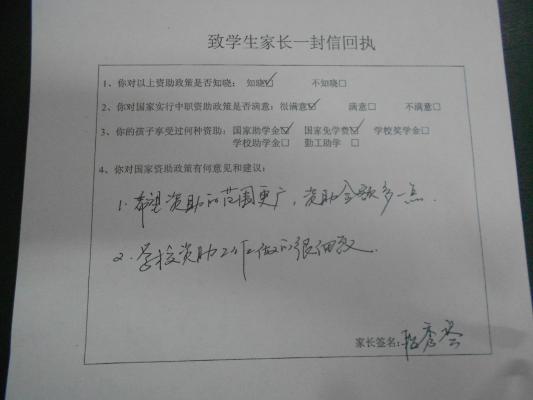 致学生家长一封信回执
1、你对以上资助政策是否知晓: 知晓☑ 不知晓□
2、你对国家实行中职资助政策是否满意: 很满意☑ 满意□ 不满意□
3、你的孩子享受过何种资助: 国家助学金☑ 国家免学费☑ 学校奖学金□
学校助学金□ 勤工助学 □
4、你对国家资助政策有何意见和建议:
1. 希望资助的范围更广, 资助金额多一点.
2. 学校资助工作做的很细致.
家长签名: